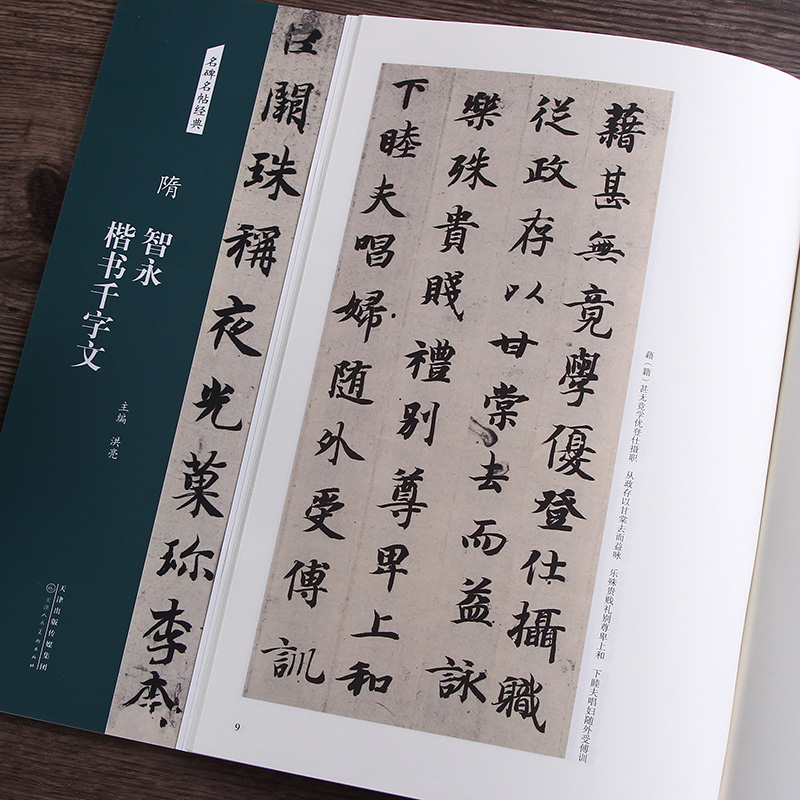 名碑名帖经典
隋
智永
楷书千字文
主编 洪亮
天津出版传媒集团
天津人民美术出版社
闕珠稱夜光菓珎李柰
藉甚無竟學優登仕攝職
從政存以甘棠去而益詠
樂殊貴賤禮別尊卑上和
下睦夫唱婦随外受傅訓
藉（籍）甚无竟学优登仕摄职 从政存以甘棠去而益咏 乐殊贵贱礼别尊卑上和 下睦夫唱妇随外受傅训
9